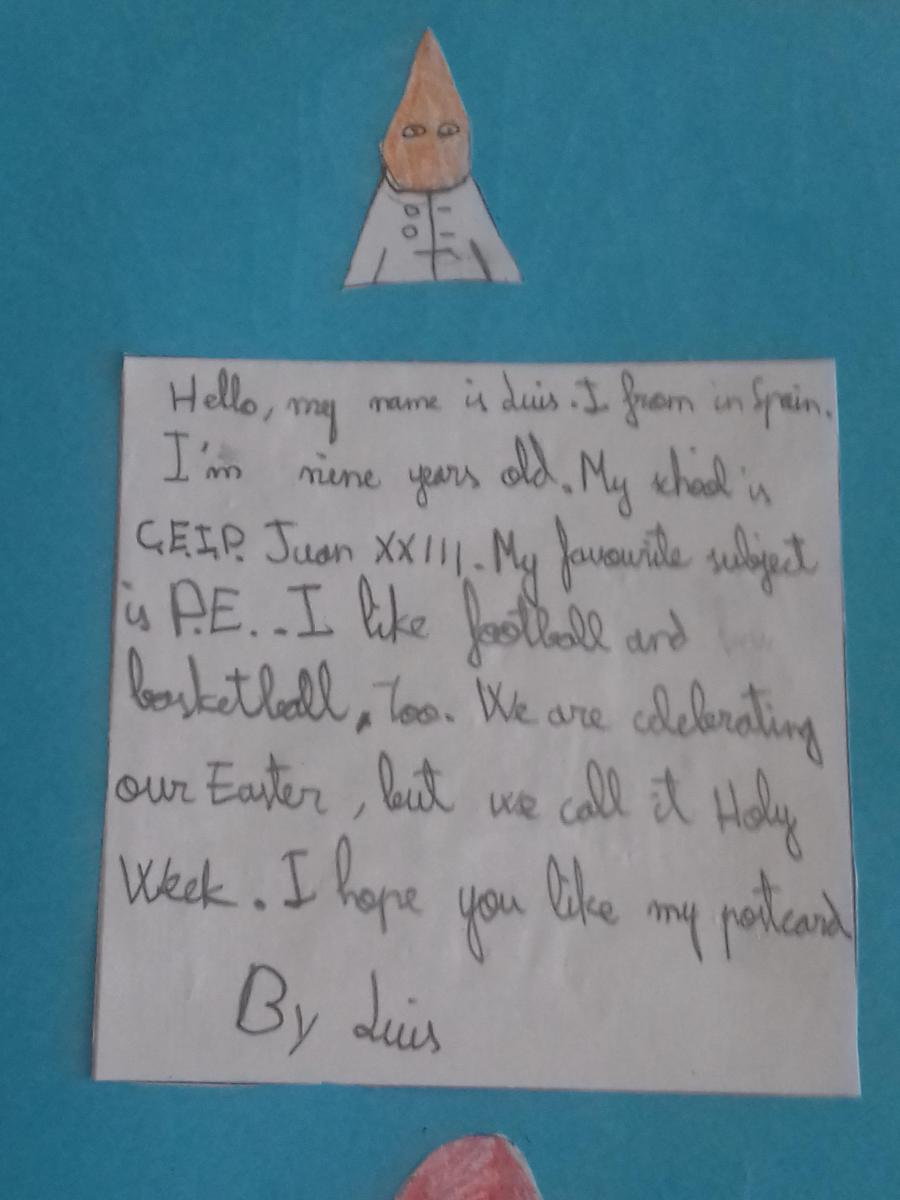 Hello, my name is Luis. I from in Spain.
I'm nine years old. My school is
C.E.I.P. Juan XXIII. My favourite subject
is P.E... I like football and
basketball, Too. We are celebrating
our Easter, but we call it Holy
Week. I hope you like my postcard
By Luis